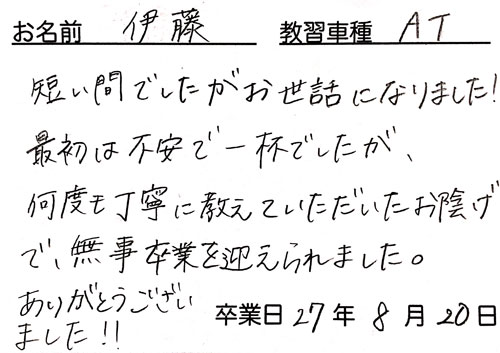 お名前 伊藤 教習車種 AT
短い間でしたがお世話になりました!
最初は不安で一杯でしたが、
何度も丁寧に教えていただいたお陰げ
で、無事卒業を迎えられました。
ありがとうござい
ました!!
卒業日 27年 8月20日